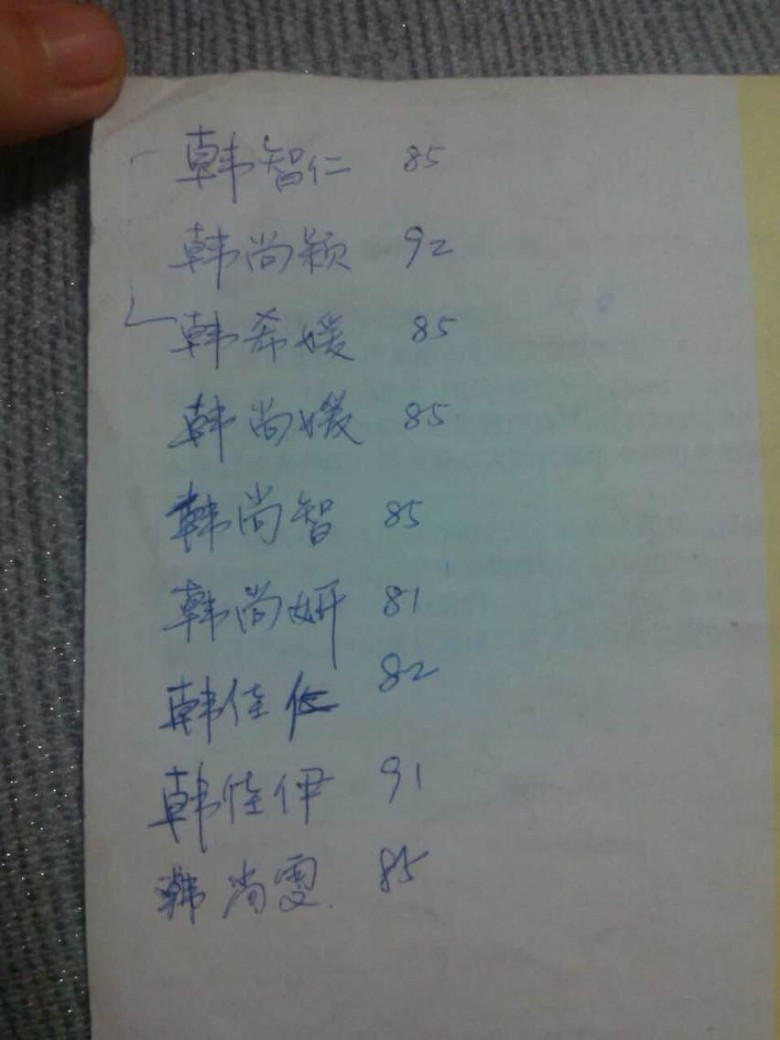 韩智仁 85
韩尚颖 92
韩希媛 85
韩尚媛 85
韩尚智 85
韩尚妍 81
韩佳仁 82
韩佳伊 91
韩尚雯 85